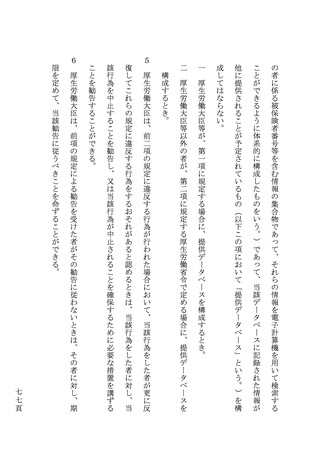 の者に係る被保険者番号等を含む情報の集合物であって、それらの情報を電子計算機を用いて検索する
ことができるように体系的に構成したものをいう。）であって、当該データベースに記録された情報が
他に提供されることが予定されているもの（以下この項において「提供データベース」という。）を構
成してはならない。
一　厚生労働大臣等が、第一項に規定する場合に、提供データベースを構成するとき。
二　厚生労働大臣等以外の者が、第二項に規定する厚生労働省令で定める場合に、提供データベースを
構成するとき。
５　厚生労働大臣は、前二項の規定に違反する行為が行われた場合において、当該行為をした者が更に反
復してこれらの規定に違反する行為をするおそれがあると認めるときは、当該行為をした者に対し、当
該行為を中止することを勧告し、又は当該行為が中止されることを確保するために必要な措置を講ずる
ことを勧告することができる。
６　厚生労働大臣は、前項の規定による勧告を受けた者がその勧告に従わないときは、その者に対し、期
限を定めて、当該勧告に従うべきことを命ずることができる。
七七頁